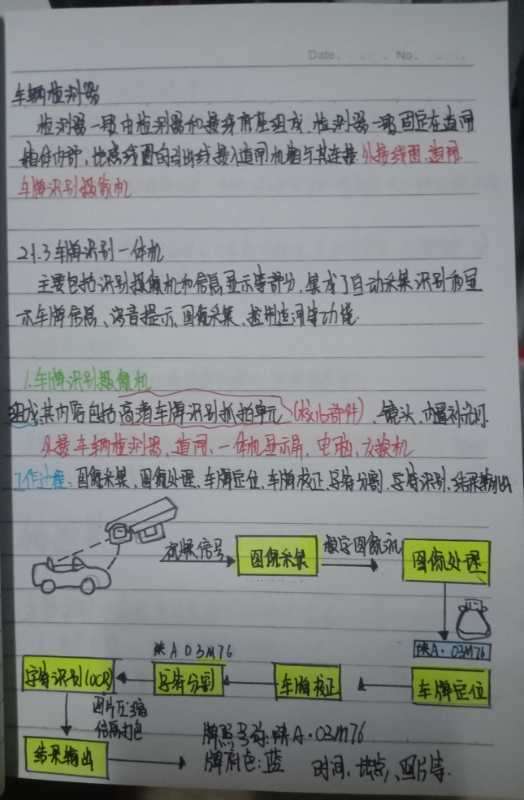 Date. No.
车辆检测器
检测器一般由检测器和接线底座组成，检测器一般固定在道闸
箱体内部，地感线圈的引出线接入道闸机箱与其连接 外接线圈、道闸
车牌识别摄像机
2.1.3 车牌识别一体机
主要包括识别摄像机和信息显示等部分，集成了自动采集识别和显
示车牌信息、语音提示、图像采集、控制道闸等功能.
1.车牌识别摄像机
组成：其内容包括高清车牌识别抓拍单元(核心部件)、镜头、内置补光灯.
外接车辆检测器、道闸、一体机显示屏、电脑、交换机
工作过程：图像采集、图像处理、车牌定位、车牌校正、字符分割、字符识别、结果输出
视频信号 图像采集 数字图像 图像处理
陕A·03M76
陕A 03M76
字符识别(OCR) 字符分割 车牌校正 车牌定位
图片压缩
信息打包
结果输出
牌照号码：陕A·03M76
牌颜色：蓝 时间、地点、图片等.